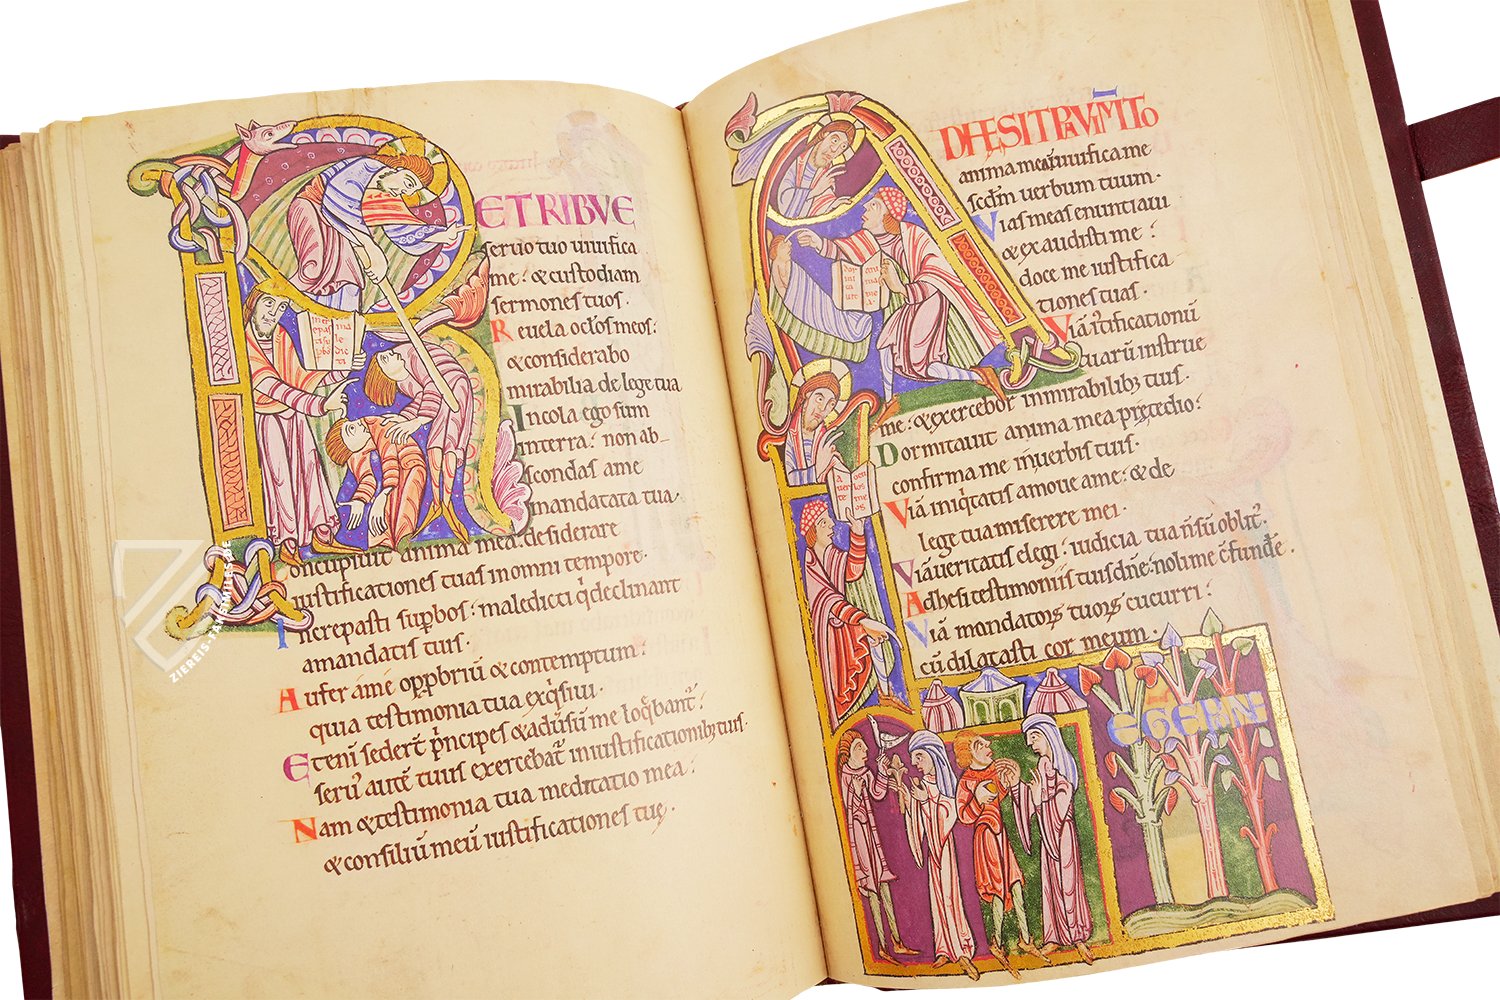 RETRIBVE
servo tuo vivifica
me: & custodiam
sermones tuos.
Revela oclos meos:
& considerabo
mirabilia de lege tua
Incola ego sum
interra: non ab-
scondas ame
mandatata tua.
Concupivit anima mea: desiderare
iustificationes tuas inomni tempore.
Increpasti supbos: maledicti q declinant
amandatis tuis.
Aufer ame opprobriū & contemptum:
quia testimonia tua exqsivi.
Eteni sedert principes & adusum me loqbant:
servꝰ autē tuus exercebat iniustificationibꝫ tuis.
Nam & testimonia tua meditatio mea:
& consiliū meū iustificationes tuę.
increpasti supbo maledicti
ADHESIT PAVIMTO
anima mea vivifica me
scdm verbum tuum.
Vias meas enuntiavi
& exaudisti me:
doce me iustifica
tiones tuas.
Viā iustificationū
tuarū instrue
me: & exercebor inmirabilibꝫ tuis.
Dormitavit anima mea pretedio:
confirma me inverbis tuis.
Viā iniqtatis amove ame: & de
lege tua miserere mei.
Viā veritatis elegi: iudicia tua n sū oblit.
Adhesi testimoniis tuis dne: noli me cfundē.
Viā mandatoꝝ tuoꝝ cucurri:
cū dilatasti cor meum.
dormitavit anima mea.
averte oculos meos
LEGEPONE
ZIEREIS FAKSIMILES.DE